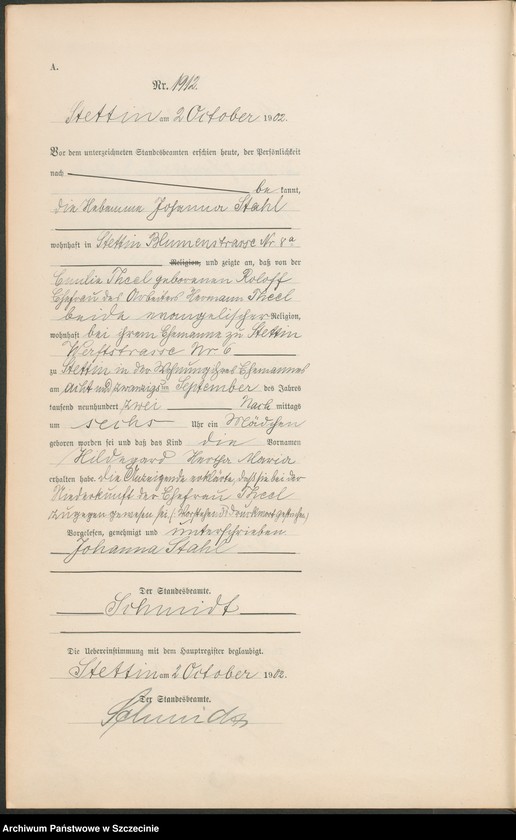 A.
Nr. 1912.
Stettin am 2 October 1902.
Vor dem unterzeichneten Standesbeamten erschien heute, der Persönlichkeit
nach
be kannt,
die Hebamme Johanna Stahl
wohnhaft in Stettin Blumenstrasse Nr 8a
Religion, und zeigte an, daß von der
Emilie Theel geborenen Roloff
Ehefrau des Arbeiters Hermann Theel
beide evangelischer Religion,
wohnhaft bei ihrem Ehemanne zu Stettin
Werftstrasse Nr 6
zu Stettin in der Wohnung ihres Ehemannes
am acht und zwanzigsten September des Jahres
tausend neunhundert zwei Nach mittags
um sechs Uhr ein Mädchen
geboren worden sei und daß das Kind die Vornamen
Hildegard Hertha Maria
erhalten habe. Die Anzeigende erklärte, daß sie bei der
Niederkunft der Ehefrau Theel
zugegen gewesen sei (Vorstehend Druckwort gestrichen)
Vorgelesen, genehmigt und unterschrieben
Johanna Stahl
Der Standesbeamte.
Schmidt
Die Uebereinstimmung mit dem Hauptregister beglaubigt.
Stettin am 2 October 1902.
Der Standesbeamte.
Schmidt
Archiwum Państwowe w Szczecinie